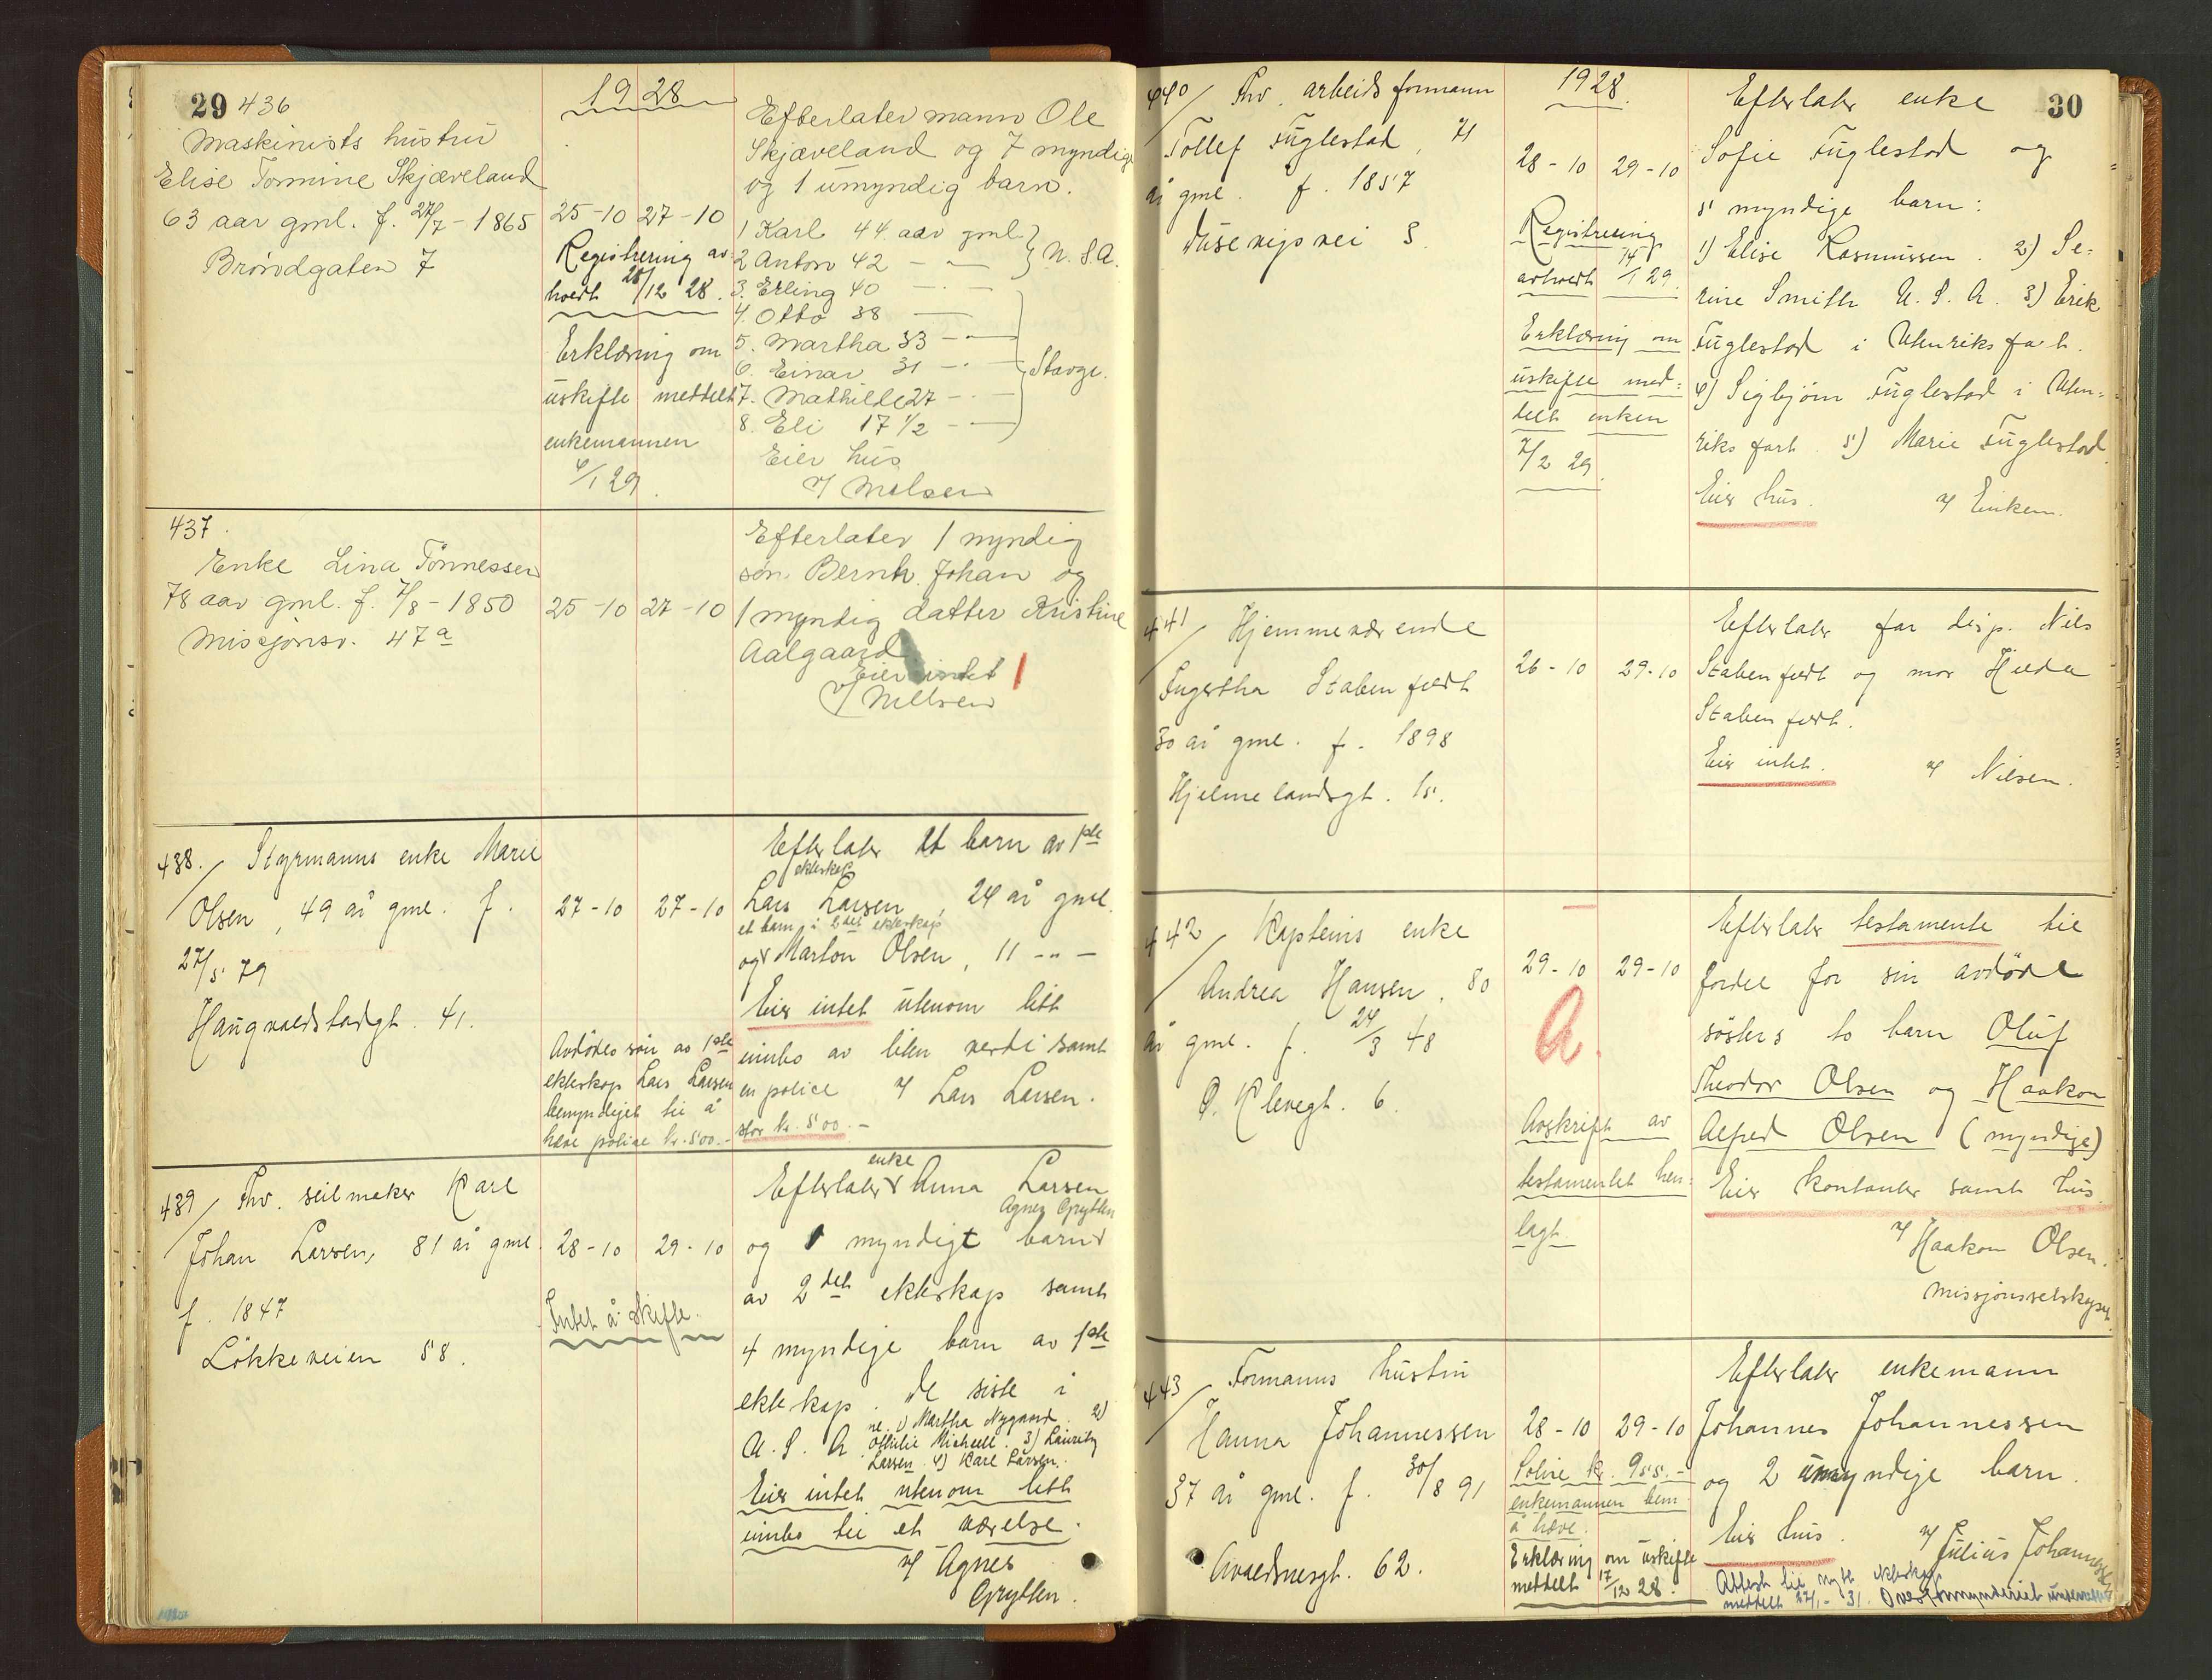 29
436
Maskinists hustru
Elise Tomine Skjæveland
63 aar gml. f. 27/7 - 1865
Brøndgaten 7
1928
25-10 27-10
Registrering av-
holdt 28/12 28.
Erklæring om
uskifte meddelt
enkemannen
4/1 29.
Efterlater mann Ole
Skjæveland og 7 myndige
og 1 umyndig barn.
1 Karl 44 aar gml. } U.S.A.
2 Anton 42 - " -
3. Erling 40 - " -
4. Otto 38 -
5. Martha 33 - " -
6. Einar 31 - " } Stavgr.
7. Mathilde 27 - " -
8. Eli 17 1/2 - " -
Eier hus
v/
437.
Enke Lina Tönnessen
78 aar gml. f. 7/8 - 1850
Missjonsv. 47a
25-10 27-10
Efterlater 1 myndig
søn Bernh. Johan og
1 myndig datter Kristine
Aalgaard
Eier intet
v/
438. Styrmanns enke Marie
Olsen, 49 år gml. f.
27/5 79
Haugvaldstadgt. 41.
27-10 27-10
Avdödes sön av 1ste
ekteskap Lars Larsen
bemyndiget til å
heve police kr. 500.-
Efterlater et barn av 1ste
ekteskap
Lars Larsen, 24 år gml.
et barn i 2det ekteskap
og Marton Olsen, 11 - " -
Eier intet utenom litt
innbo av liten verdi samt
en police v/ Lars Larsen.
stor kr. 500.-
439/ Fhv. seilmaker Karl
Johan Larsen, 81 år gml.
f. 1847
Lökkeveien 58.
28-10 29-10
Intet å skifte.
Efterlater enke Anna Larsen
Agnes Grytten
og 1 myndigt barn
av 2det ekteskap samt
4 myndige barn av 1ste
ekteskap. De siste i
U.S.A. nl. 1) Martha Nygaard. 2)
Othilie Michaell. 3) Lauritz
Larsen. 4) Karl Larsen.
Eier intet utenom litt
innbo til et værelse.
v/ Agnes
Grytten.
30
440/ Fhv. arbeidsformann
Tollef Fuglestad, 71
år gml. f. 1857
Dusevigsvei 3.
1928.
28-10 29-10
Registrering
avholdt 14/1 29.
Erklæring om
uskifte med-
delt enken
7/2 29.
Efterlater enke
Sofie Fuglestad og
5 myndige barn:
1) Elise Rasmussen. 2) Se-
rine Smith U.S.A. 3) Erik
Fuglestad i Utenriksfart.
4) Sigbjörn Fuglestad i Uten-
riksfart. 5) Marie Fuglestad.
Eier hus. v/ Enken.
441/ Hjemmeværende
Ingertha Stabenfeldt
30 år gml. f. 1898
Hjelmelandsgt. 15.
26-10 29-10
Efterlater far disp. Nils
Stabenfeldt og mor Hilda
Stabenfeldt.
Eier intet. v/ Nilsen.
442/ Kapteins enke
Andrea Hansen, 80
år gml. f. 24/3 48
Ö. Klevegt. 6.
29-10 29-10
A.
Avskrift av
testamentet hen-
lagt.
Efterlater testamente til
fordel for sin avdöde
sösters to barn Oluf
Theodor Olsen og Haakon
Alfred Olsen (myndige)
Eier kontanter samt hus.
v/ Haakon Olsen.
Missjonsselskapet.
443/ Formanns hustru
Hanna Johannessen
37 år gml. f. 30/8 91
Avaldsnesgt. 62.
28-10 29-10
Police kr. 955.-
enkemannen bem.
å hæve.
Erklæring om uskifte
meddelt 17/12 28.
Efterlater enkemann
Johannes Johannessen
og 2 umyndige barn.
Eier hus. v/ Julius Johannessen
Attest til nytt ekteskap
meddelt 22/1 - 31. Overformynderiet underrettet